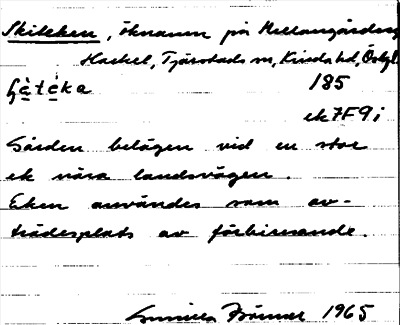 Skiteken, öknamn på Mellangårdens,
Haskel, Tjärstads sn, Kinda hd, Östgl.
185
ek 7F9i
Gården belägen vid en stor
ek nära landsvägen.
Eken användes som av-
trädesplats av förbiresande.
Gunilla 1965